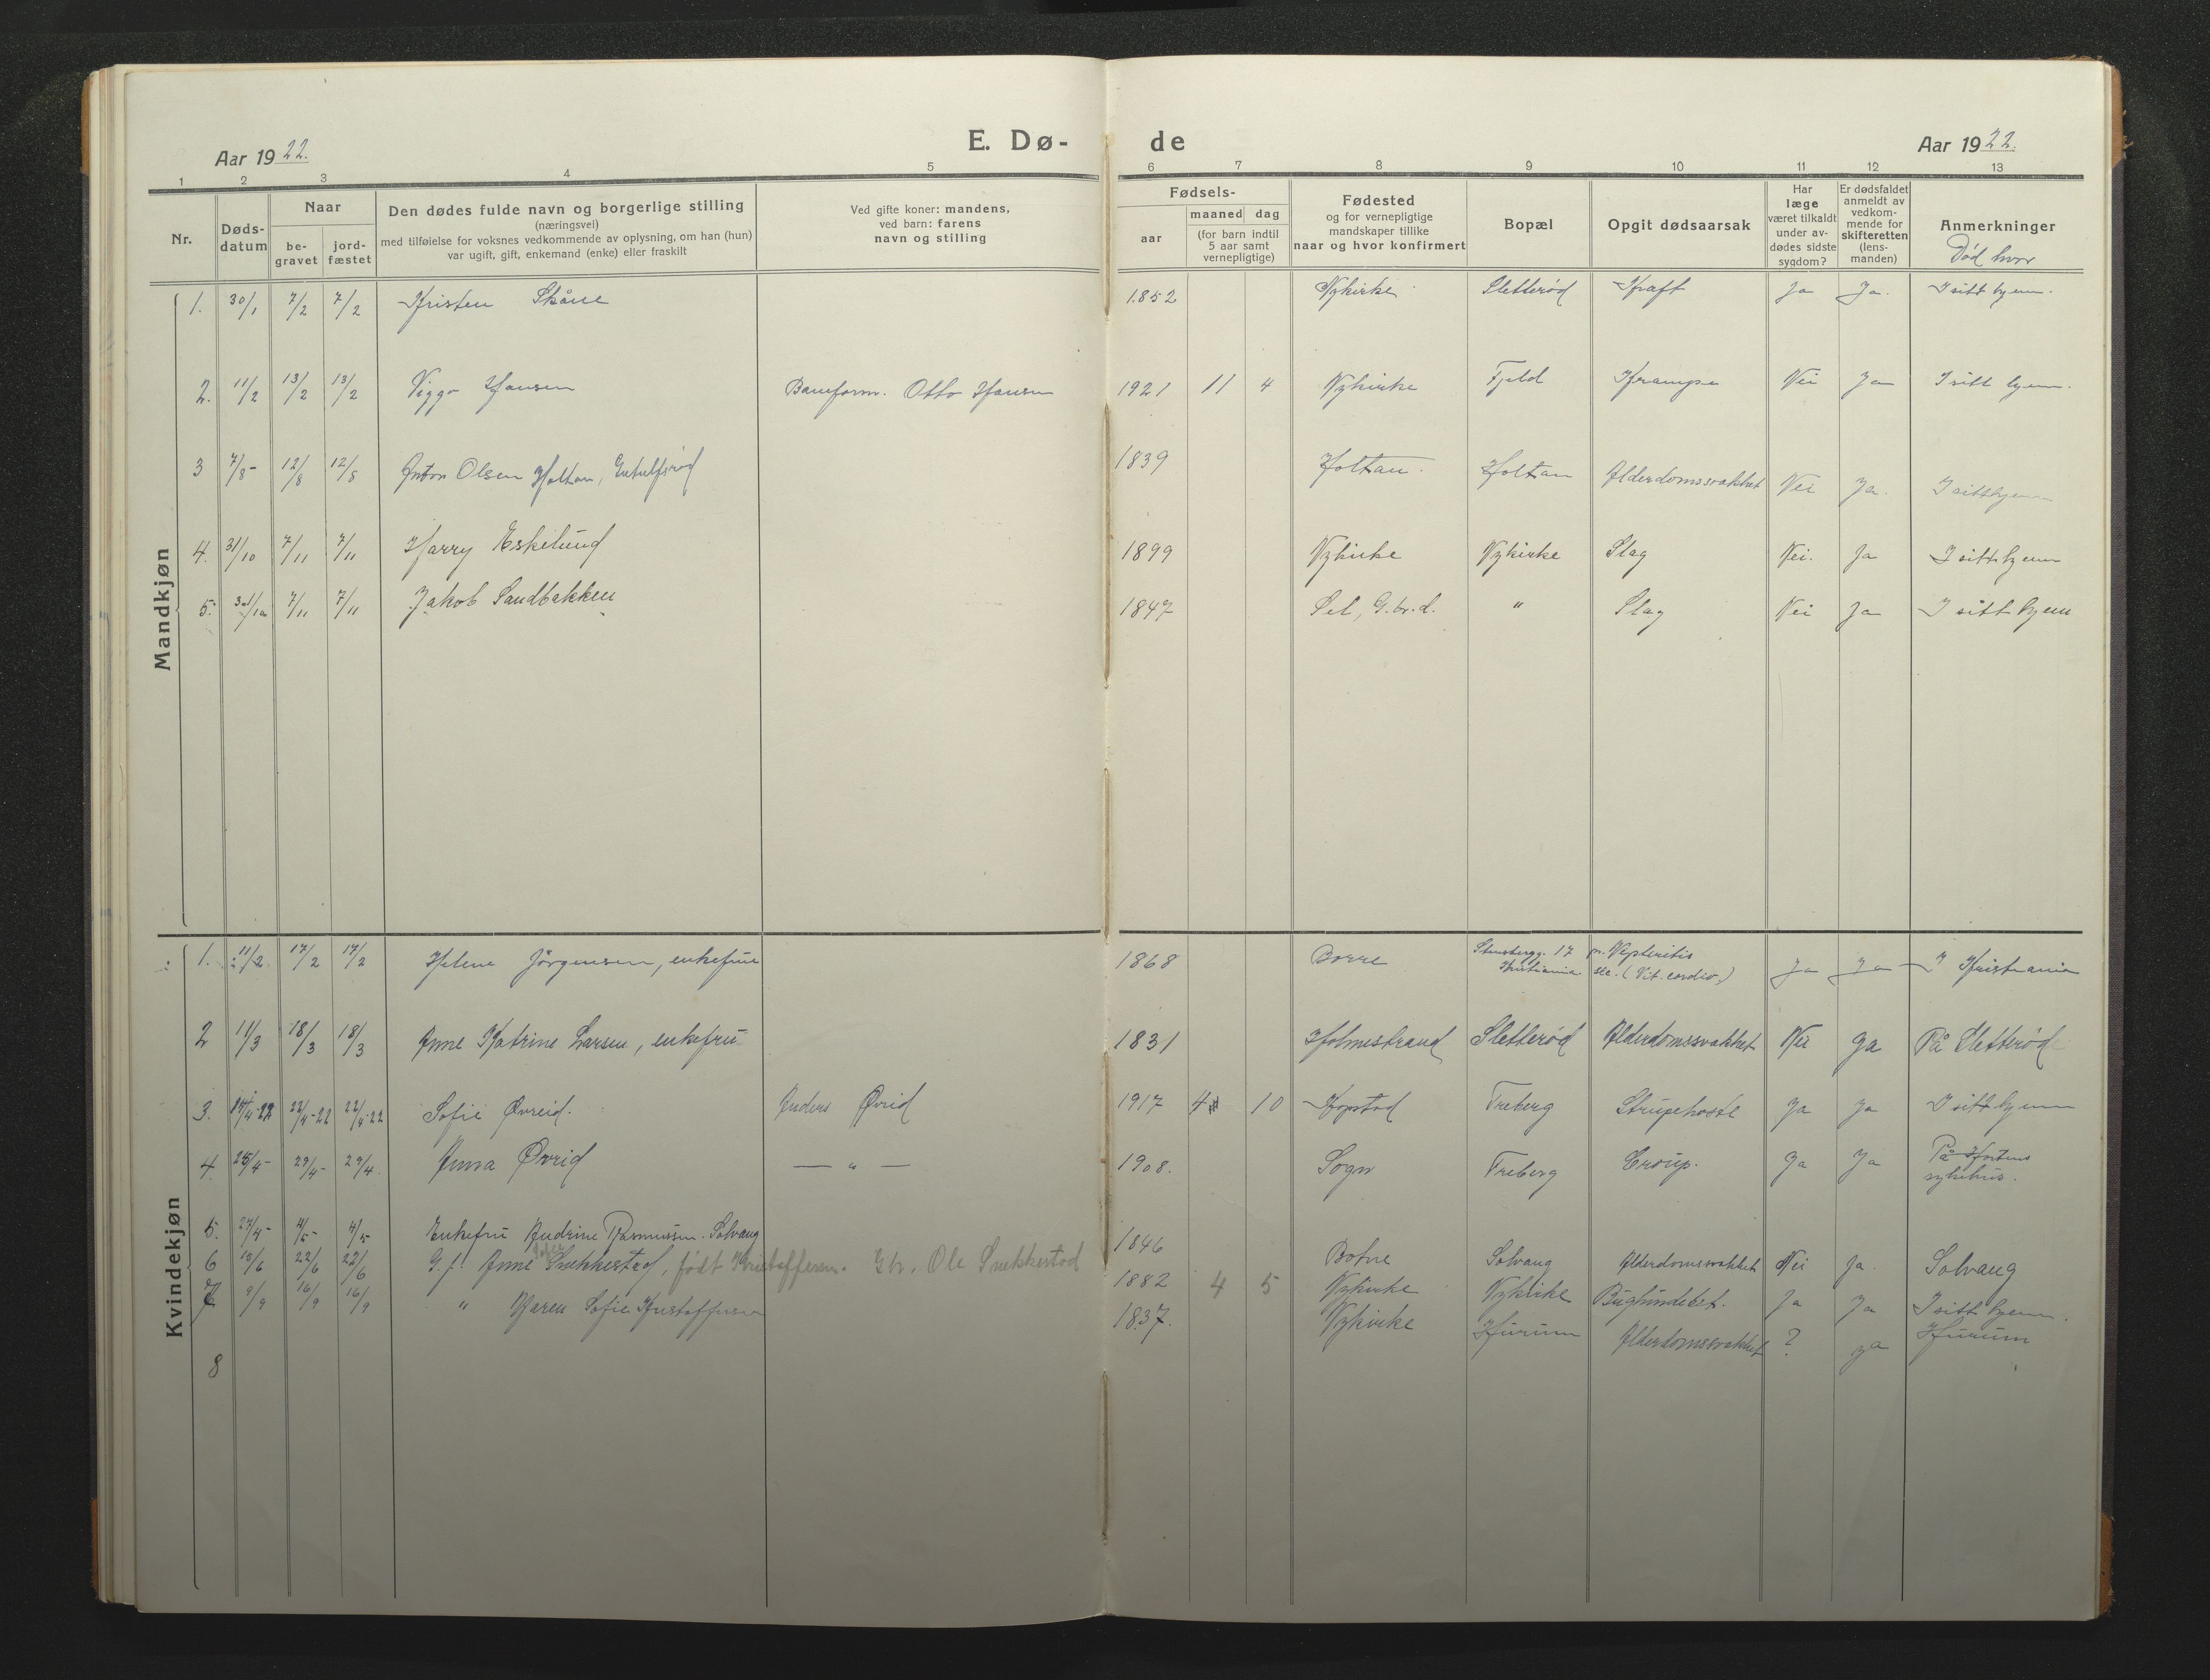 Aar 1922.
E. Dø-
de
Aar 1922.
1 2 3 4 5 6 7 8 9 10 11 12 13
Nr.
Døds-
datum
Naar
be-
gravet
jord-
fæstet
Den dødes fulde navn og borgerlige stilling
(næringsvei)
med tilføielse for voksnes vedkommende av oplysning, om han (hun)
var ugift, gift, enkemand (enke) eller fraskilt
Ved gifte koner: mandens,
ved barn: farens
navn og stilling
Fødsels-
aar
maaned dag
(for barn indtil
5 aar samt
vernepligtige)
Fødested
og for vernepligtige
mandskaper tillike
naar og hvor konfirmert
Bopæl
Opgit dødsaarsak
Har
læge
været tilkaldt
under av-
dødes sidste
sygdom?
Er dødsfaldet
anmeldt av
vedkom-
mende for
skifteretten
(lens-
manden)
Anmerkninger
Død hvor
Mandkjøn
1. 30/1 7/2 7/2 Kristen Skåne 1852 Nykirke Sletterød Kraft Ja Ja. I sitt hjem.
2. 11/2 13/2 13/2 Viggo Hansen Banform. Otto Hansen 1921 11 4 Nykirke Fjeld Krampe Nei Ja I sitt hjem.
3 7/8- 12/8 12/8 Anton Olsen Holtan, 1839 Holtan. Holtan Alderdomssvakhet Nei Ja. I sitt hjem
4. 31/10 7/11 7/11 Harry Eskelund 1899 Nykirke Nykirke Slag Nei. Ja I sitt hjem
5. 7/11 7/11 Jakob Sandbakken 1847 Sel, G.br.d. " Slag Nei Ja I sitt hjem
Kvindekjøn
1. 11/2 17/2 17/2 Helene Jörgensen, enkefrue 1868 Borre Stensbergg. 17 Kristiania (Vit. cordis) Ja Ja I Kristiania
2 11/3 18/3 18/3 Anne Katrine Larsen, enkefru 1831 Holmestrand Sletterød Alderdomssvakhet Nei Ja På Sletterød
3. 22/4-22 22/4-22 Sofie Øvreid. Anders Øvrid 1917 4 10 Kopstad Freberg Strupehoste Ja Ja I sitt hjem
4. 25/4- 29/4- 29/4. Anna Øvrid — " — 1908. Sogn Freberg Croup. Ja Ja På Hortens
sykehus.
5. 27/4- 4/5- 4/5 Enkefru Andrine Rasmussen. Solvang 1846 Botne Solvang Alderdomssvakhet Nei Ja Solvang
6 18/6 22/6 22/6 G.f. Anne Snekkestad, født Kristoffersen. Gbr. Ole Snekkestad 1882 4 5 Nykirke Nykirke Bughindebet. Ja Ja I sitt hjem.
7 9/9 16/9 16/9 " Maren Sofie Kristoffersen 1837. Nykirke Hurum Alderdomssvakhet ? ja Hurum
8